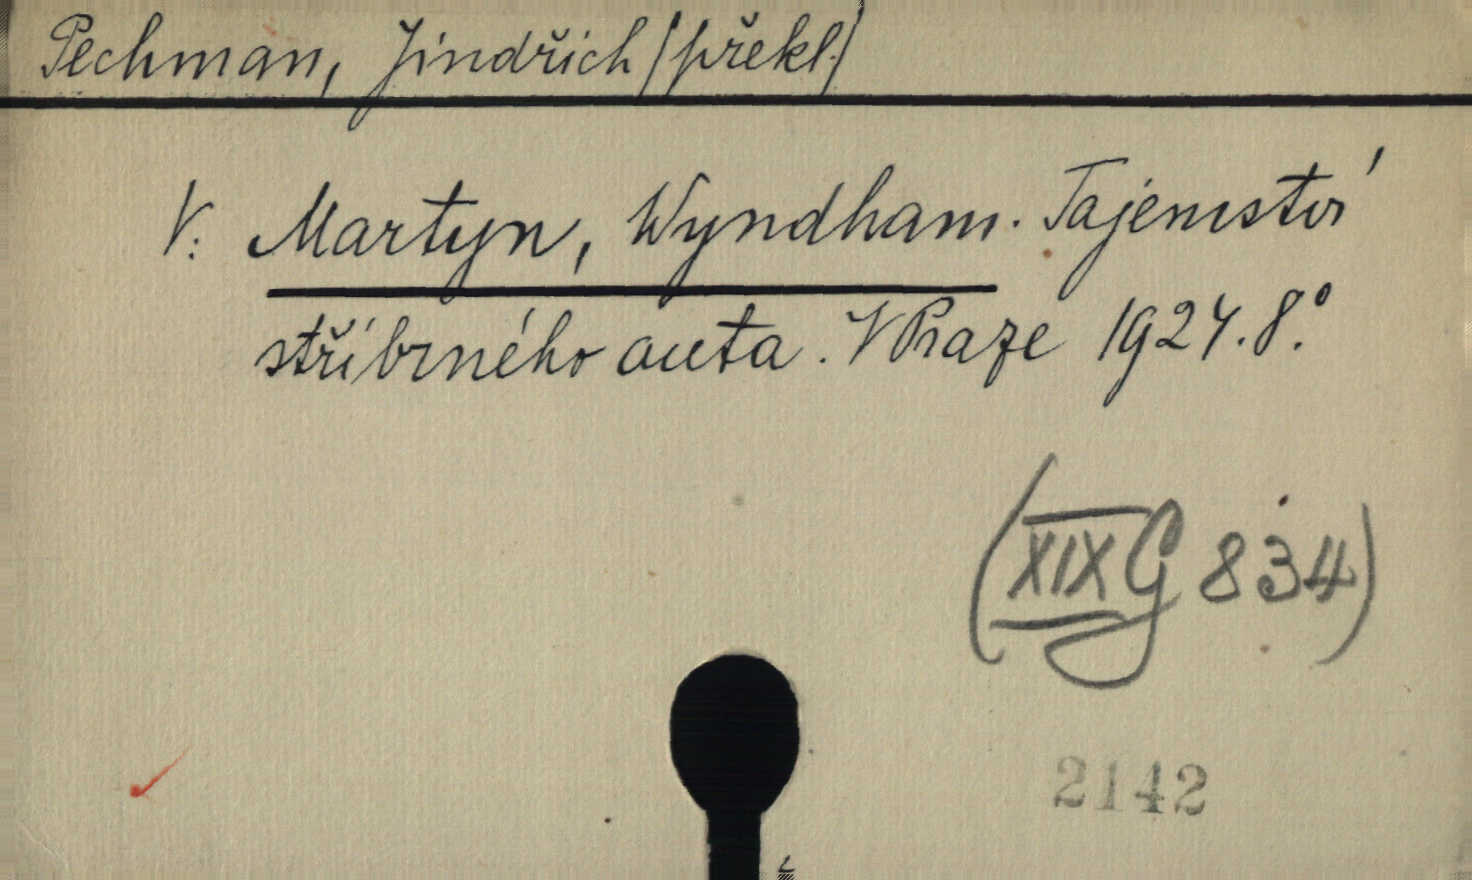 Pechman, Jindřich /překl./
V: Martyn, Wyndham. Tajemství
stříbrného auta. V Praze 1924. 8.°
(XIX G 834)
2142